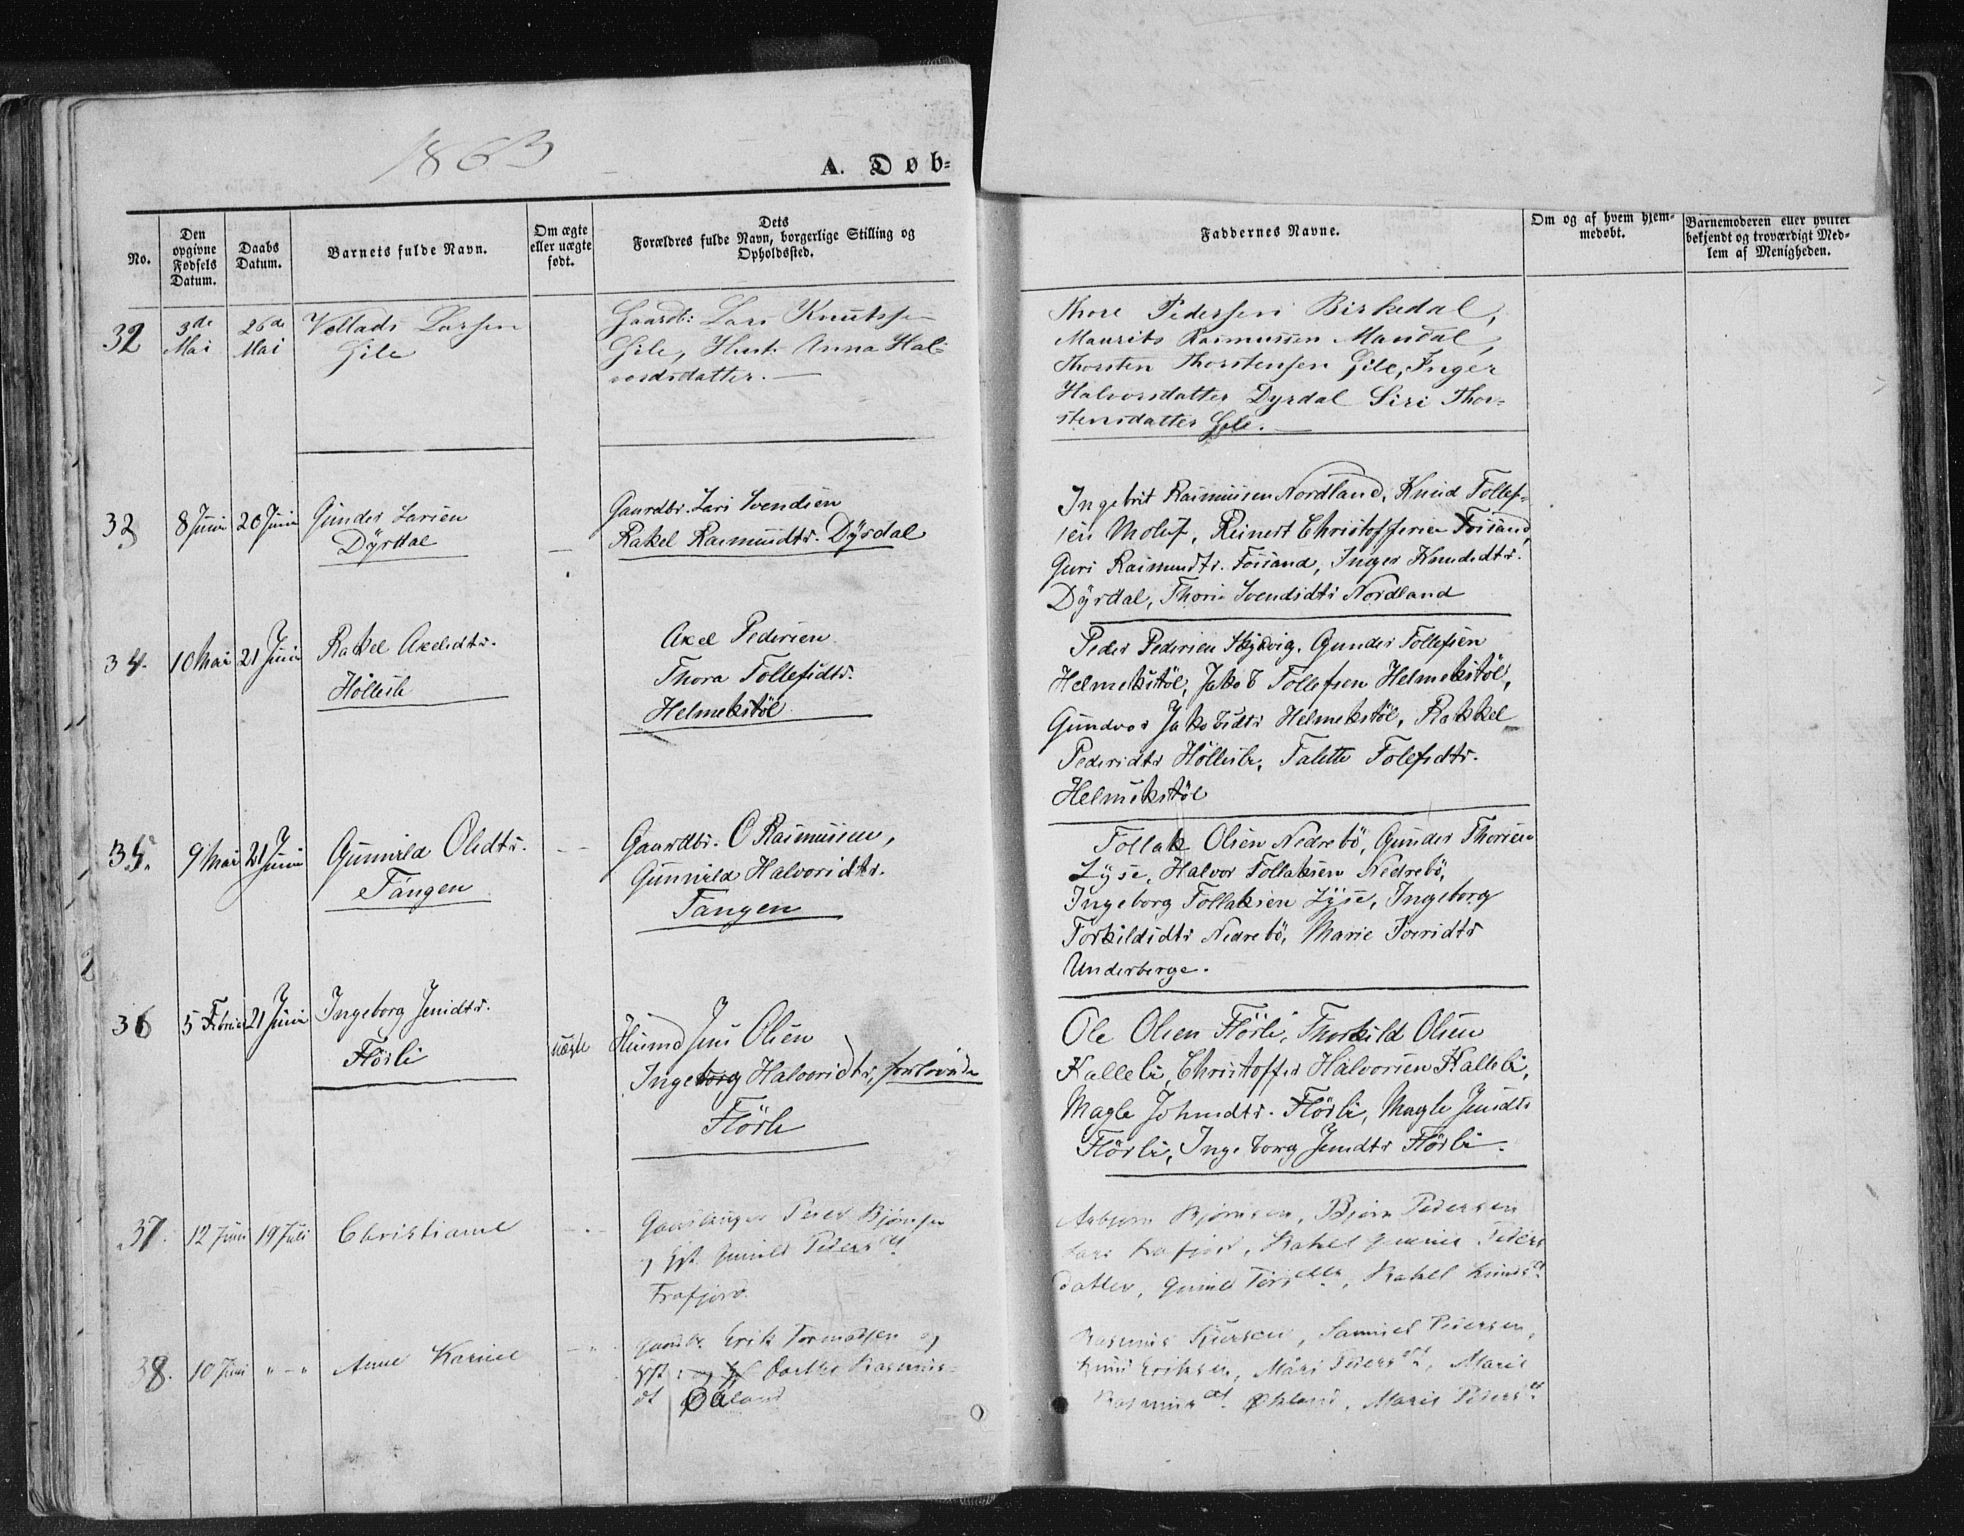 1863
A. Døb-
No.
Den opgivne Fødsels Datum.
Daabs Datum.
Barnets fulde Navn.
Om ægte eller uægte født.
Dets Forældres fulde Navn, borgerlige Stilling og Opholdssted.
Faddernes Navne.
Om og af hvem hjemmedøbt.
Barnemoderen eller hvilket bekjendt og troværdigt Medlem af Menigheden.
32
3de Mai
26de Mai
Larsen
Gile
Gaardb: Lars Knutsse
Gile, Hust. Anna Hal-
vordsdatter. —
Thore Pedersen Birkedal,
Maurits Rasmussen Mandal,
Thorsten Thorstensen Gile, Inger
Halvorsdatter Dyrdal Siri Thor-
stensdatter Gile. —
33
8 Juni
20 Juni
Gunder Larsen
Dÿrdal
—
Gaardbr. Lars Svendsen
Rakel Rasmusdtr. Dÿrdal
Ingebrit Rasmussen Nordland, Knud Tollef-
sen Moluf, Reinert Christoffersen Fossand,
Guri Rasmusdtr. Fossand, Inger Knudsdtr.
Dÿrdal, Svendsdtr Nordland
34.
10 Mai
21 Juni
Rakel Axelsdtr.
Hollesli
Axel Pedersen
Thora Tollefsdtr.
Helmekstöl
Peder Pedersen Gunder Tollefsen
Helmekstöl, Jakob Tollefsen Helmekstöl,
Gundvor Jakobsdtr Helmekstöl, Rakkel
Pedersdtr Hollesli, Talette Tolefsdtr.
Helmekstöl
35.
9 Mai
21 Juni
Gunnild Olsdtr.
Tangen
— —
Gaardbr. O Rasmussen,
Gunnild Halvorsdtr.
Tangen
Tollak Olsen Nedrebö, Gunder Thorsen
Lÿse, Halvor Tollaksen Nedrebö,
Ingeborg Tollaksen Lÿse, Ingeborg
Torkildsdtr Nedrebö, Marie Iversdtr
Underberge.
36
5 Februar
21 Juni
Ingeborg Jensdtr.
Flörli
uægte
Jens Olsen
Ingeborg Halvorsdtr, forlovede
Flörli
Ole Olsen Flörli, Thorkild Olsen
Kalleli, Christoffer Halvorsen Kalleli,
Magle Johnsdtr. Flörli, Magle Jensdtr
Flörli, Ingeborg Jensdtr Flörli.
37.
12 Juni
19 Juli
Christiane
— . —
Peder Bjørnsen
Gunild Pedersdt
Frafjord.
Asbjørn Bjørnsen, Bjørn Pedersen
Lars Frafjord, Rakel Peders
datter, Gunild Rakel Knudsdt.
38.
10 Juni
" - "
Anne Karine
— " .
Gaardbr Erik Tormodsen og
Gift Dorthe Rasmus-
dt Øaland
Rasmus Samuel Pedersen,
Knud Eriksen, Mari Pedersdt, Marie
Rasmusdt. Økland, Maris Pedersdt